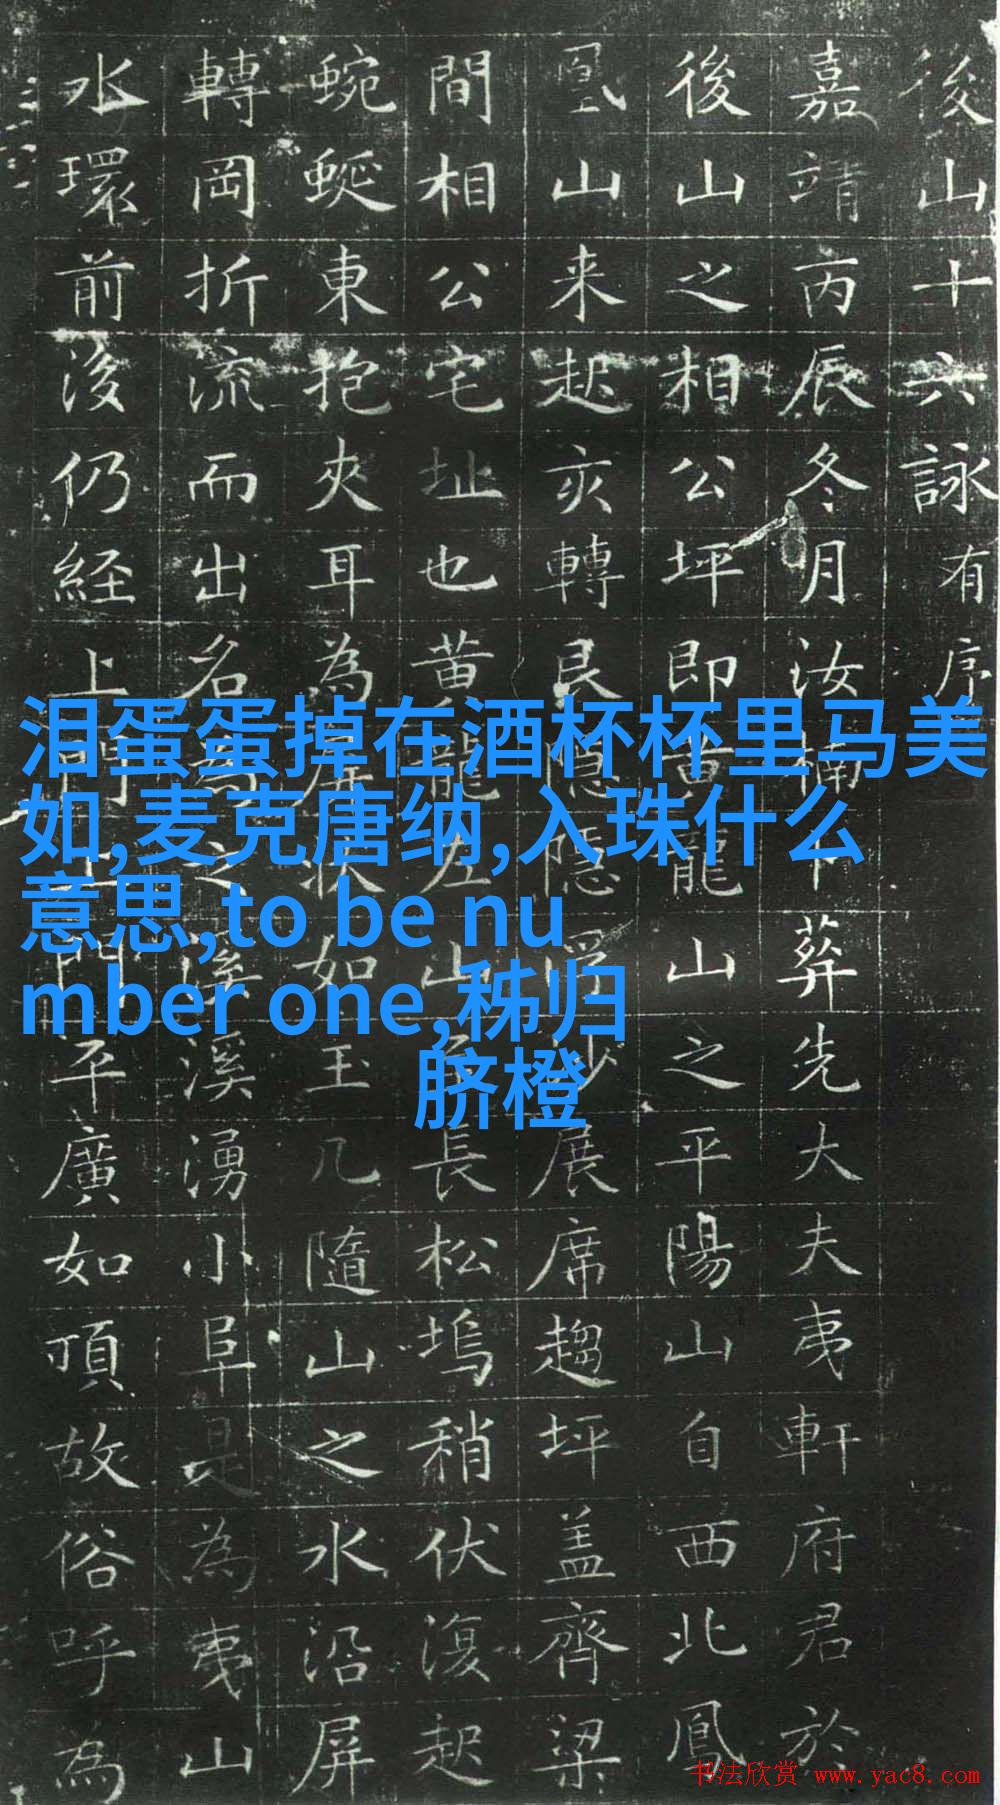 後山十六詠有序
嘉靖丙辰冬月汝葬先大夫夷軒府君於
後山之相公坪即黄龍山之平陽山自西北鳳
凰山来起亥轉艮隱展席趨坪盖齊梁
間相公宅址也黄龍左山長松塢稍伏復起
蜿蜒東抱夾耳為屏狀如玉几隨山之水沿屏
轉岡折流而出名為之溪溪湧小阜是為夷山
水環前後仍経上門上門平廣如頂故俗呼為
泪蛋蛋掉在酒杯杯里马美
如,麦克唐纳,入珠什么
意思,to be nu
mber one,秭归
脐橙
书法欣赏 www.yac8.com